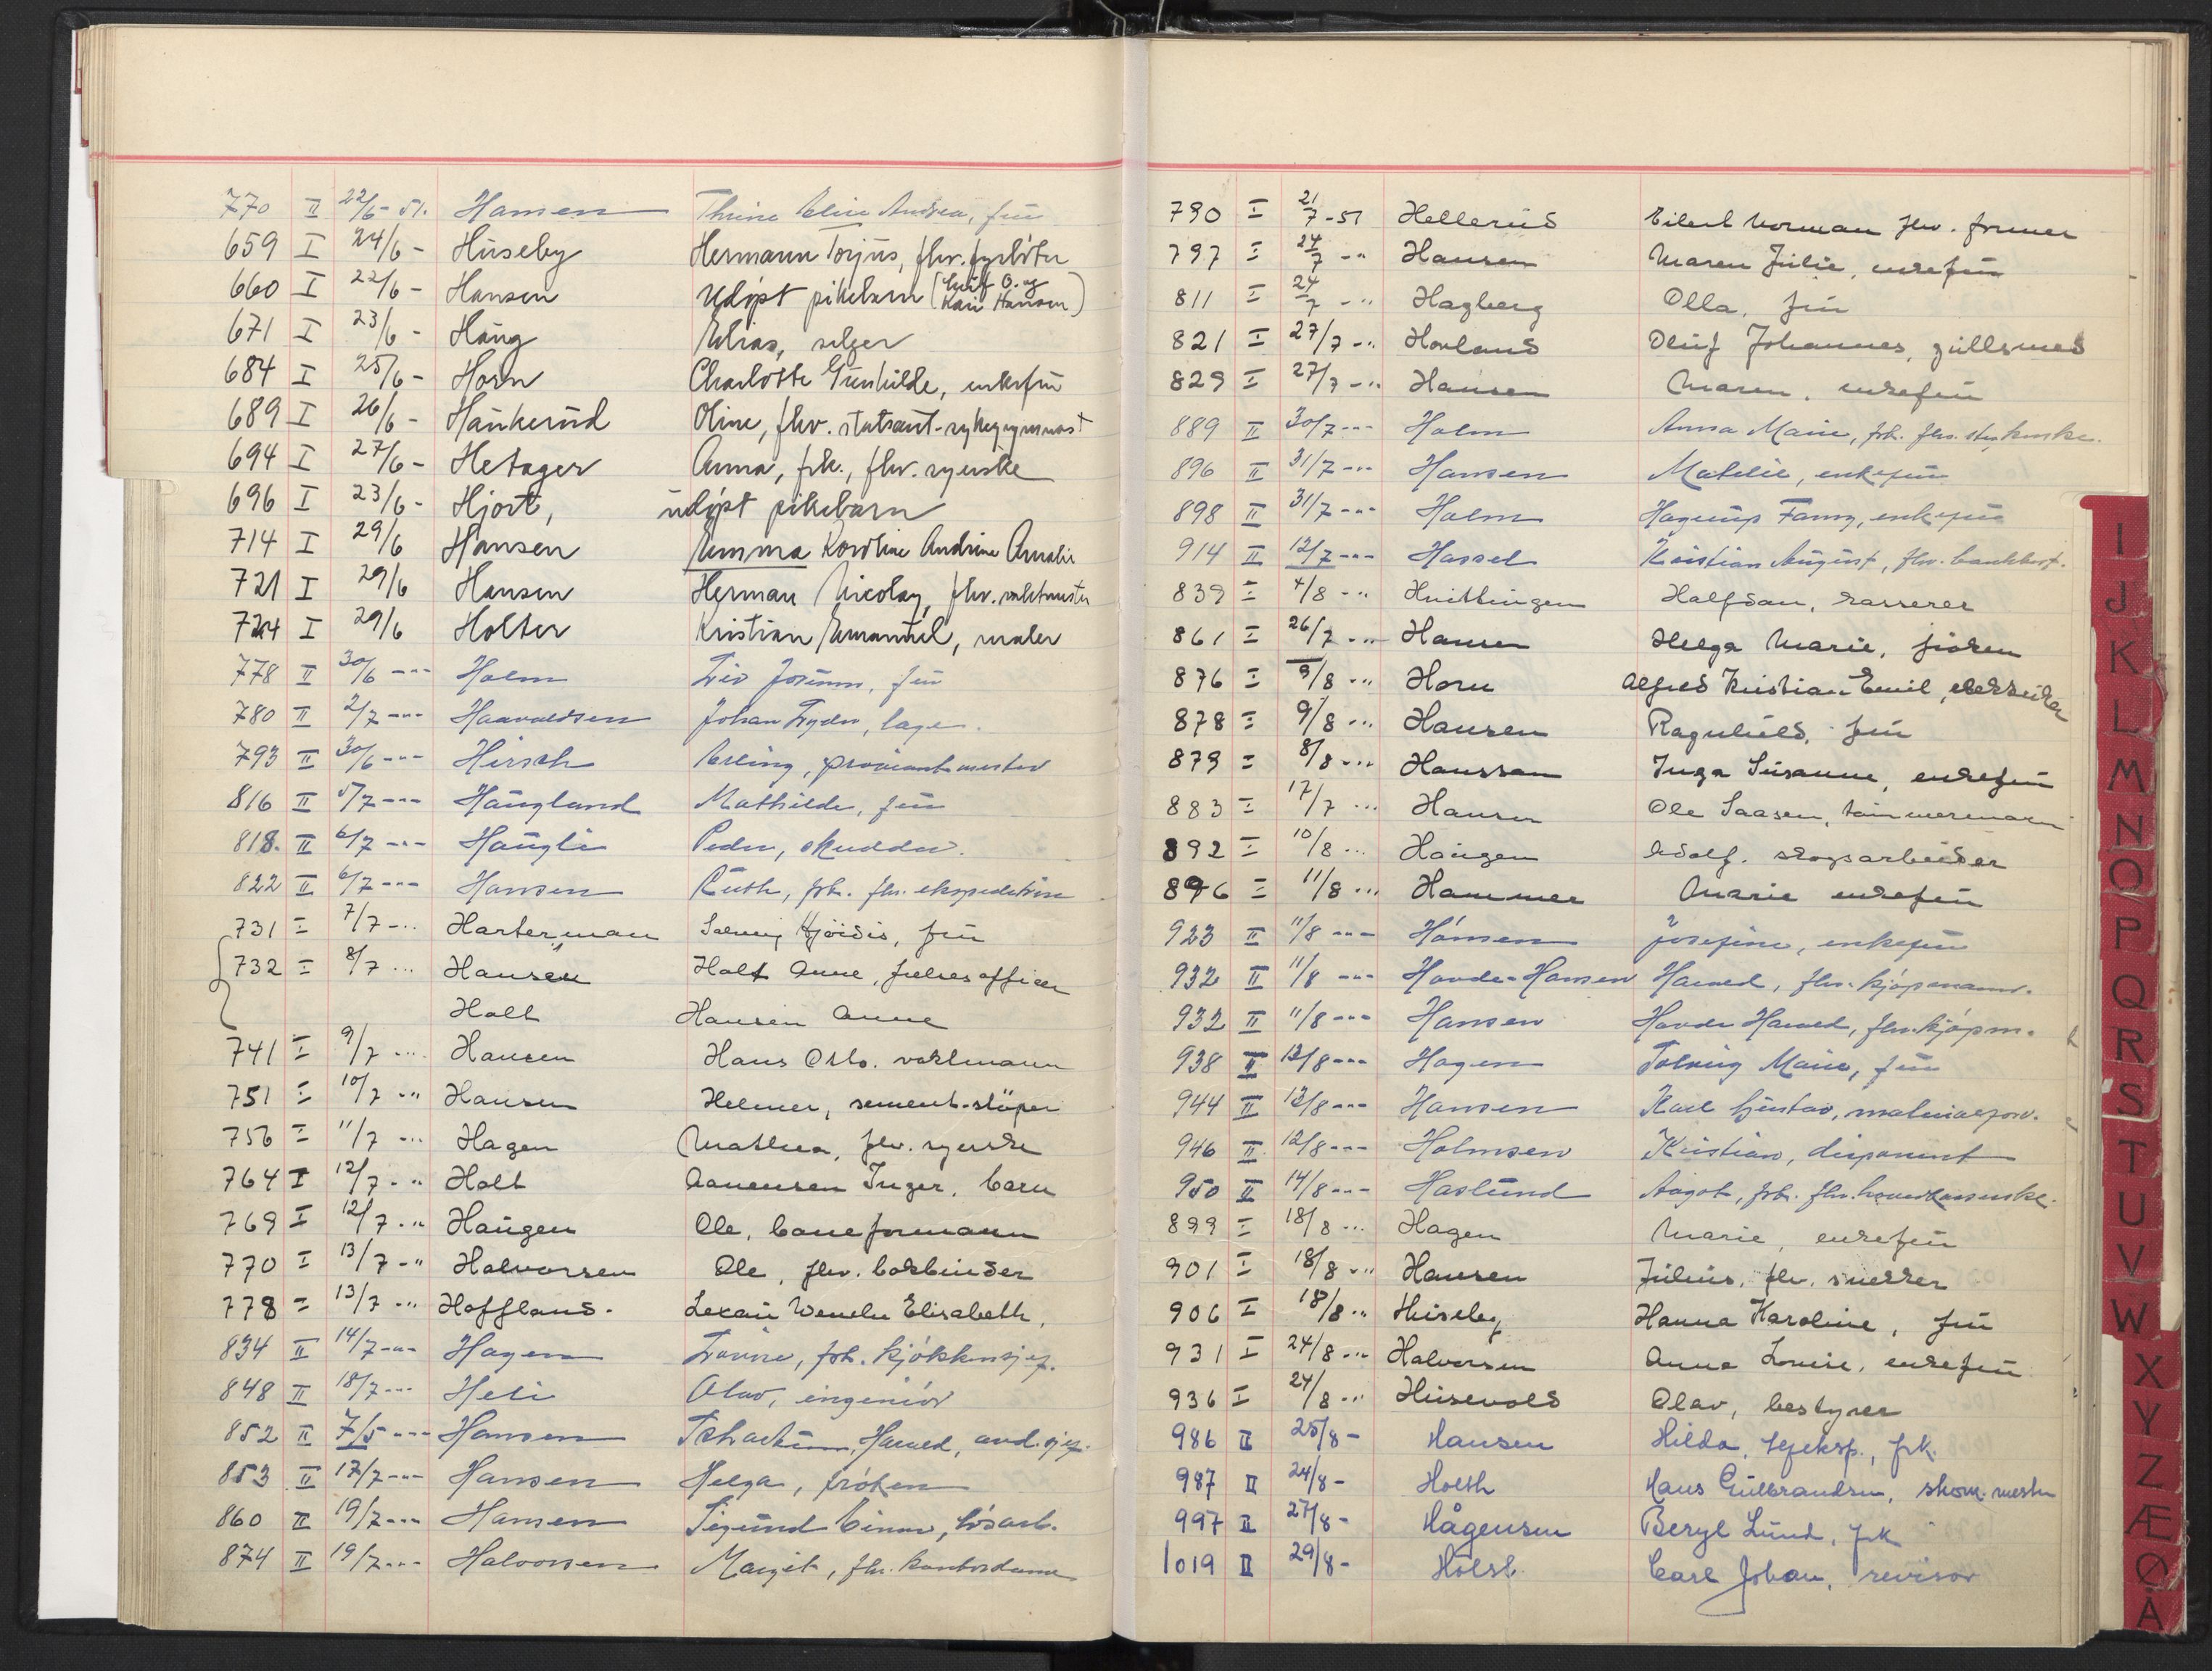 770 II 22/6-51. Hansen Thrine Elise Andrea, frü
659 I 24/6 - Hüseby Hermann Torjüs, fhv. fyrbøter
660 I 22/6 - Hansen Udøpt pikebarn (Leif O. og Kari Hansen)
671 I 23/6 - Haüg Elias, selger
684 I 25/6 - Horn Charlotte Günhilde, enkefrü
689 I 26/6 - Haükerüd Oline, fhv. statsaüt. sykegymnast
694 I 27/6 - Hetager Anna, frk., fhv. syerske
696 I 23/6 - Hjort, üdøpt pikebarn
714 I 29/6 Hansen Emma Karoline Andrine Amalie
721 I 29/6 Hansen Herman Nicolay, fhv. vaktmester
724 I 29/6 Holter Kristian Emanüel, maler
778 II 30/6 -"- Holm Liv Jorünn, frü
780 II 2/7 -"- Haavaldsen Johan Lyder, lager.
793 II 30/6 -"- Hirsch Erling, proviantmester
816 II 5/7 -"- Haügland Mathilde, frü
818. II 6/7 -"- Haügli Peder, skredder.
822 II 6/7 -"- Hansen Rüth, frk. fhv. ekspeditrise
731 I 7/7 -" Harterman Solveig Hjördis, frü
732 I 8/7 -" Hansen Holt Anne, frelsesoffiser
Holt Hansen Anne
741 I 9/7 -" Hansen Hans Otto. vaktmann
751 I 10/7 -" Hansen Helmer, sement-støper
756 I 11/7 -" Hagen Mathea, fhv. syerske
764 I 12/7 -" Holt Aanensen Inger, barn
769 I 12/7 -" Haügen Ole, baneformann
770 I 13/7 -" Halvorsen Ole, fhv. bokbinder
778 I 13/7 -" Hoffland. Wenche Elisabeth,
834 II 14/7 -"- Hagen Lovise, frk. kjøkkensjef.
848 II 18/7 -"- Heli Olav, ingeniør
852 II 7/5 -"- Hansen Harald, avd. sjef.
853 II 17/7 -"- Hansen Helga, frøken
860 II 19/7 -"- Hansen Sigünd Einar, løsarb.
874 II 19/7 -"- Halvorsen Margit, fhv. kontordame
790 I 21/7 -51 Hellerüd Eilert Norman fhv. former
797 I 24/7 -" Hansen Maren Jülie, enkefrü
811 I 24/7 -" Hagberg Olla, frü
821 I 27/7 -" Hovland Olüf Johannes, güllsmed
829 I 27/7 -" Hansen Maren, enkefrü
889 II 30/7 -"- Holm Anna Marie, frk. fhv.
896 II 31/7 -"- Hansen Matilde, enkefrü
898 II 31/7 -"- Holm Hagerüp Fanny, enkefrü
914 II 12/7 -"- Hassel Kristian Aügüst, fhv. bankbest.
839 I 4/8 -" Hvittingen Halfdan, kasserer
861 I 26/7 -" Hansen Helga Marie, frøken
876 I 9/8 -" Horn Alfred Kristian Emil, elektriker
878 I 9/8 -" Hansen Ragnhild, frü
879 I 8/8 -" Hanssen Inga Süsanne, enkefrü
883 I 17/7 -" Hansen Ole Saasen, tømmermann
892 I 10/8 -" Haügen Adolf. skogsarbeider
896 I 11/8 -" Hammer Marie enkefrü
923 II 11/8 -"- Hansen Josefine, enkefrü
932 II 11/8 -"- Hovde-Hansen Harald, fhv. kjøpmann.
932 II 11/8 -"- Hansen Hovde Harald, fhv. kjøpm.
938 II 12/8 -"- Hagen Solveig Marie, frü
944 II 13/8 -"- Hansen Karl Güstav, materialforv.
946 II 12/8 -"- Holmsen Kristian, disponent
950 II 14/8 -"- Haslünd Aagot, frk. fhv.
899 I 18/8 -" Hagen Marie, enkefrü
901 I 18/8 -" Hansen Jülius, fhv. snekker
906 I 18/8 -" Hüseby Hanna Karoline, frü
931 I 24/8 -" Halvorsen Anna Lovise, enkefrü
936 I 24/8 -" Hüsevold Olav, bestyrer
986 II 25/8 - Hansen Hilda, tlfeksp., frk.
987 II 24/8 - Holth Hans Gülbrandsen, skom. mester
997 II 27/8 - Hågensen Beryl Lünd, frk
1019 II 29/8 - Holst Carl Johan, revisor
I
J
K
L
M
N
O
P
Q
R
S
T
U
V
W
X
Y
Z
Æ
Ø
Å